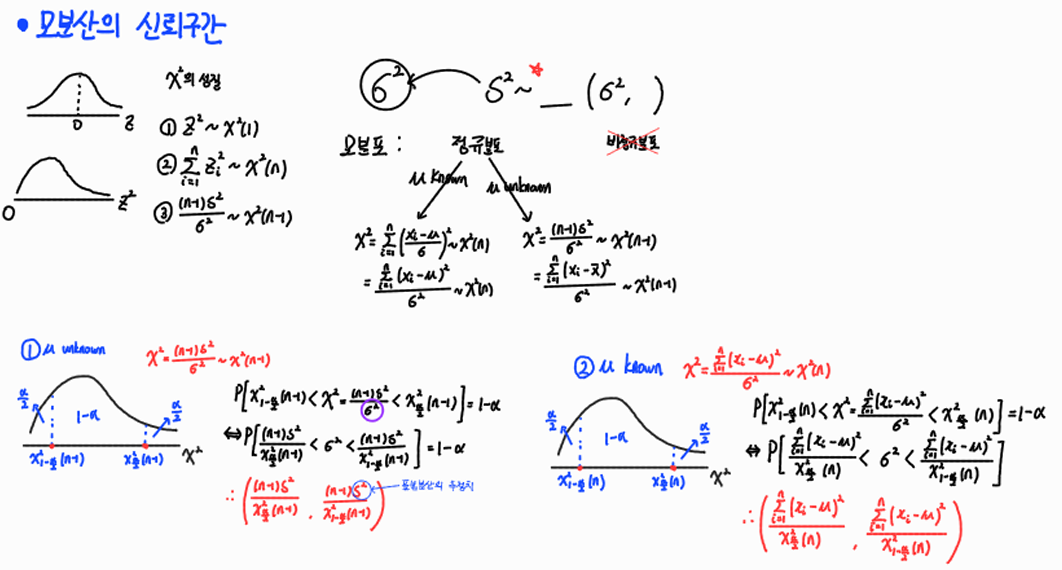 • 모분산의 신뢰구간
0 z
0 z²
χ²의 성질
① z² ~ χ²(1)
② Σ_{i=1}^{n} z_i² ~ χ²(n)
③ (n-1)S²/σ² ~ χ²(n-1)
σ² ← S² ~ __ (σ², )
모분포 : 정규분포 비정규분포
μ known μ unknown
χ² = Σ_{i=1}^{n} ((x_i-μ)/σ)² ~ χ²(n)
= Σ_{i=1}^{n} (x_i-μ)²/σ² ~ χ²(n)
χ² = (n-1)S²/σ² ~ χ²(n-1)
= Σ_{i=1}^{n} (x_i-x̄)²/σ² ~ χ²(n-1)
① μ unknown χ² = (n-1)S²/σ² ~ χ²(n-1)
α/2 1-α α/2
χ²_{1-α/2}(n-1) χ²_{α/2}(n-1) χ²
P[χ²_{1-α/2}(n-1) < χ² = (n-1)S²/σ² < χ²_{α/2}(n-1)] = 1-α
⇔ P[(n-1)S²/χ²_{α/2}(n-1) < σ² < (n-1)S²/χ²_{1-α/2}(n-1)] = 1-α
∴ ((n-1)S²/χ²_{α/2}(n-1) , (n-1)S²/χ²_{1-α/2}(n-1)) ← 표본분산의 추정치
② μ known χ² = Σ_{i=1}^{n} (x_i-μ)²/σ² ~ χ²(n)
α/2 1-α α/2
χ²_{1-α/2}(n) χ²_{α/2}(n) χ²
P[χ²_{1-α/2}(n) < χ² = Σ_{i=1}^{n} (x_i-μ)²/σ² < χ²_{α/2}(n)] = 1-α
⇔ P[Σ_{i=1}^{n} (x_i-μ)²/χ²_{α/2}(n) < σ² < Σ_{i=1}^{n} (x_i-μ)²/χ²_{1-α/2}(n)]
∴ (Σ_{i=1}^{n} (x_i-μ)²/χ²_{α/2}(n) , Σ_{i=1}^{n} (x_i-μ)²/χ²_{1-α/2}(n))